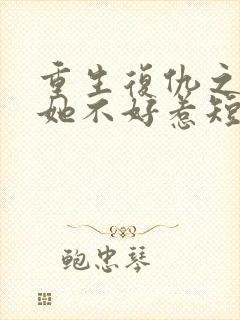 重生復仇之
她不好惹短
鲍忠琴